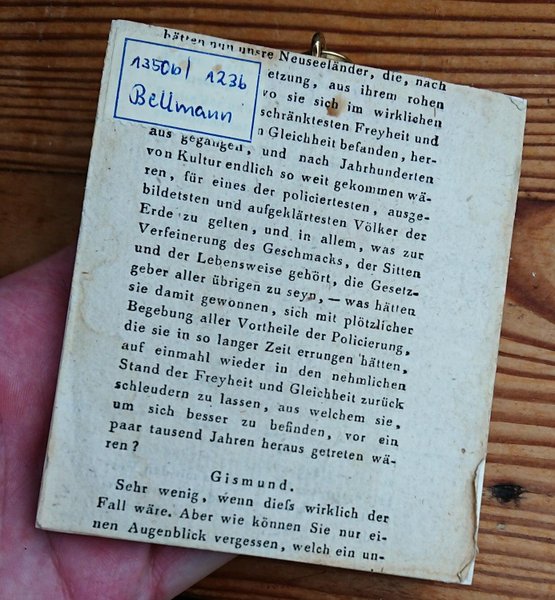 hätten nun unsre Neuseeländer, die, nach
1350b/ 123b
Bellmann
etzung, aus ihrem rohen
wo sie sich im wirklichen
schränktesten Freyheit und
n Gleichheit befanden, her-
aus gegangen, und nach Jahrhunderten
von Kultur endlich so weit gekommen wä-
ren, für eines der policiertesten, ausge-
bildetsten und aufgeklärtesten Völker der
Erde zu gelten, und in allem, was zur
Verfeinerung des Geschmacks, der Sitten
und der Lebensweise gehört, die Gesetz-
geber aller übrigen zu seyn, — was hätten
sie damit gewonnen, sich mit plötzlicher
Begebung aller Vortheile der Policierung,
die sie in so langer Zeit errungen hätten,
auf einmahl wieder in den nehmlichen
Stand der Freyheit und Gleichheit zurück
schleudern zu lassen, aus welchem sie,
um sich besser zu befinden, vor ein
paar tausend Jahren heraus getreten wä-
ren?
Gismund.
Sehr wenig, wenn diess wirklich der
Fall wäre. Aber wie können Sie nur ei-
nen Augenblick vergessen, welch ein un-